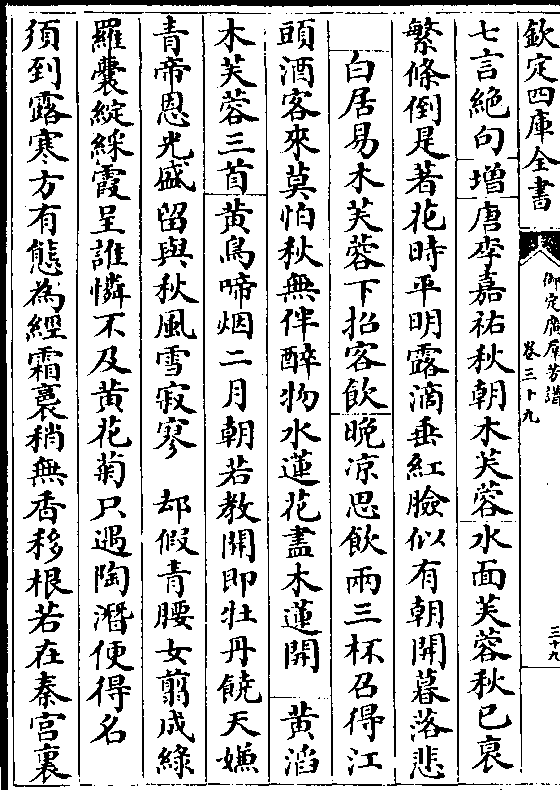 欽定四庫全書
御定廣羣芳譜
卷三十九
三十九
七言絶句增唐李嘉祐秋朝木芙蓉水面芙蓉秋已衰
繁條倒是著花時平明露滴垂紅臉似有朝開暮落悲
白居易木芙蓉下招客飲晚涼思飲兩三杯召得江
頭酒客來莫怕秋無伴醉物水蓮花盡木蓮開 黄滔
木芙蓉三首黄鳥啼烟二月朝若教開即牡丹饒天嫌
青帝恩光盛留與秋風雪寂寥 却假青腰女翦成綠
羅囊綻綵霞呈誰憐不及黄花菊只遇陶潛便得名
須到露寒方有態為經霜裛稍無香移根若在秦宫裏